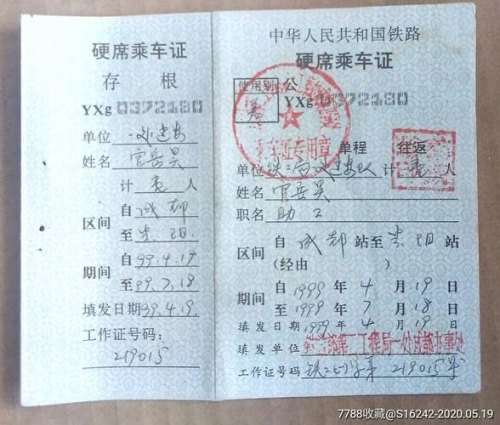 硬席乘车证
存 根
YXg 0372180
单位
姓名 官岳昊
计 壹 人
区间 自 成都
至 贵阳
期间 自 99.4.19
至 99.7.18
填发日期 99.4.19.
工作证号码:
219015
中华人民共和国铁路
硬席乘车证
使用别 公
YXg 0372180
乘车证专用章
单程 往返
单位 计 壹 人
姓名 官岳昊
职名 助工
区间 自 成都 站至 贵阳 站
(经由 )
期间 自 1999 年 4 月 19 日
至 1999 年 7 月 18 日
填发日期 1999 年 4 月 19 日
填发单位
工作证号码 219015号
7788收藏@S16242-2020.05.19